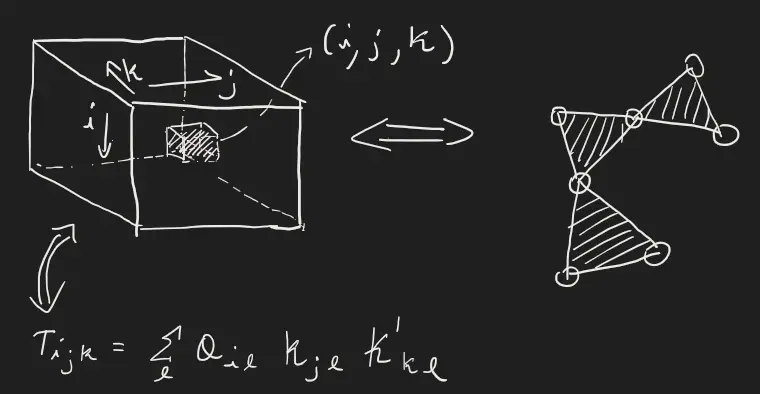 (i, j, k)
k
j
i
T_{ijk} = \sum_{l} Q_{il} K_{jl} K'_{kl}